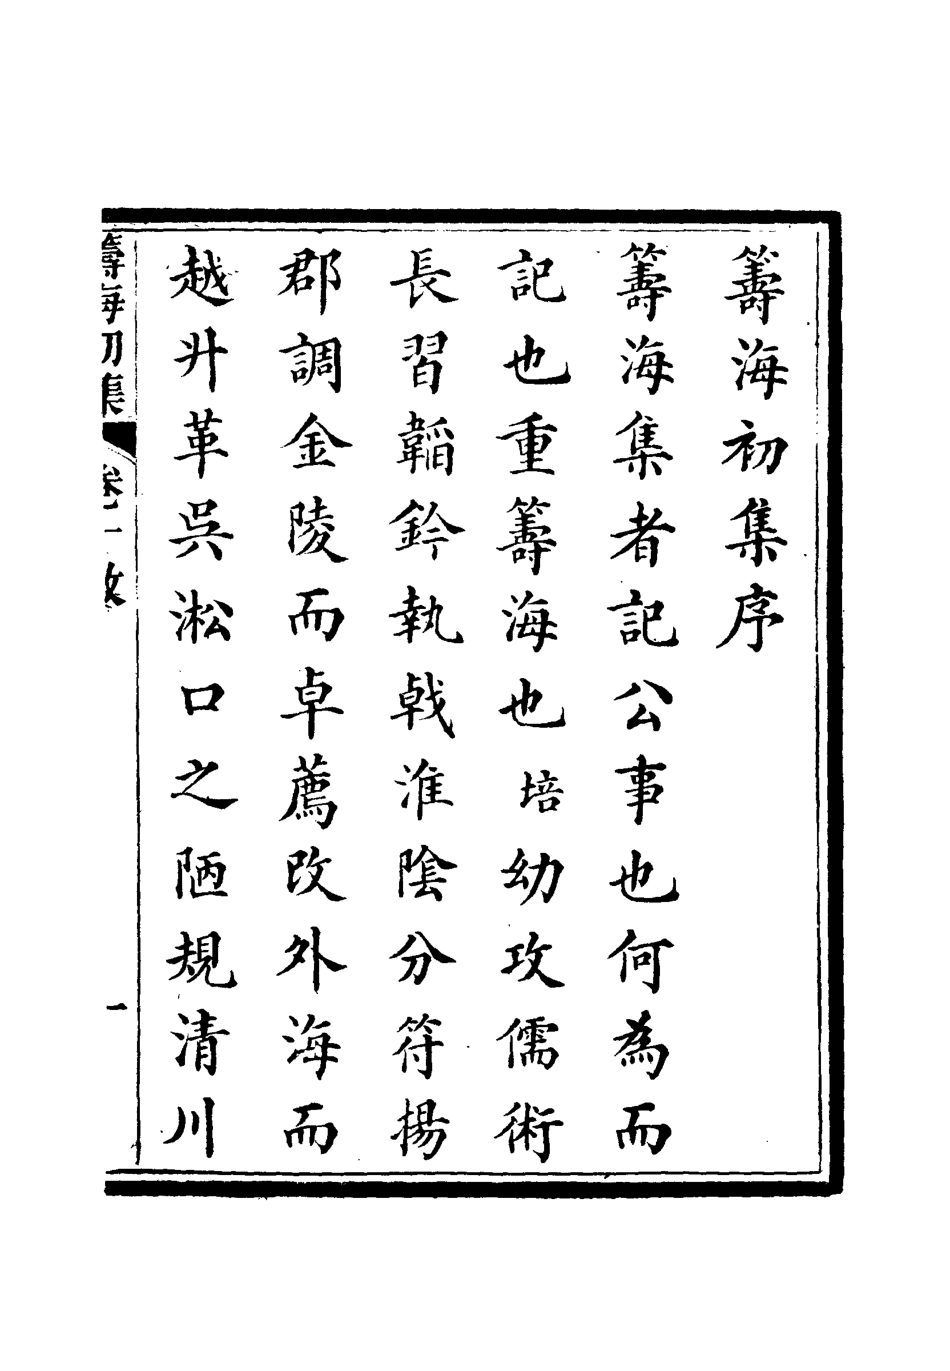 籌海初集序
籌海集者記公事也何為而
記也重籌海也培幼攻儒術
長習韜鈐執戟淮陰分符揚
郡調金陵而卓薦改外海而
越升革吳淞口之陋規清川
籌海初集
卷一
一